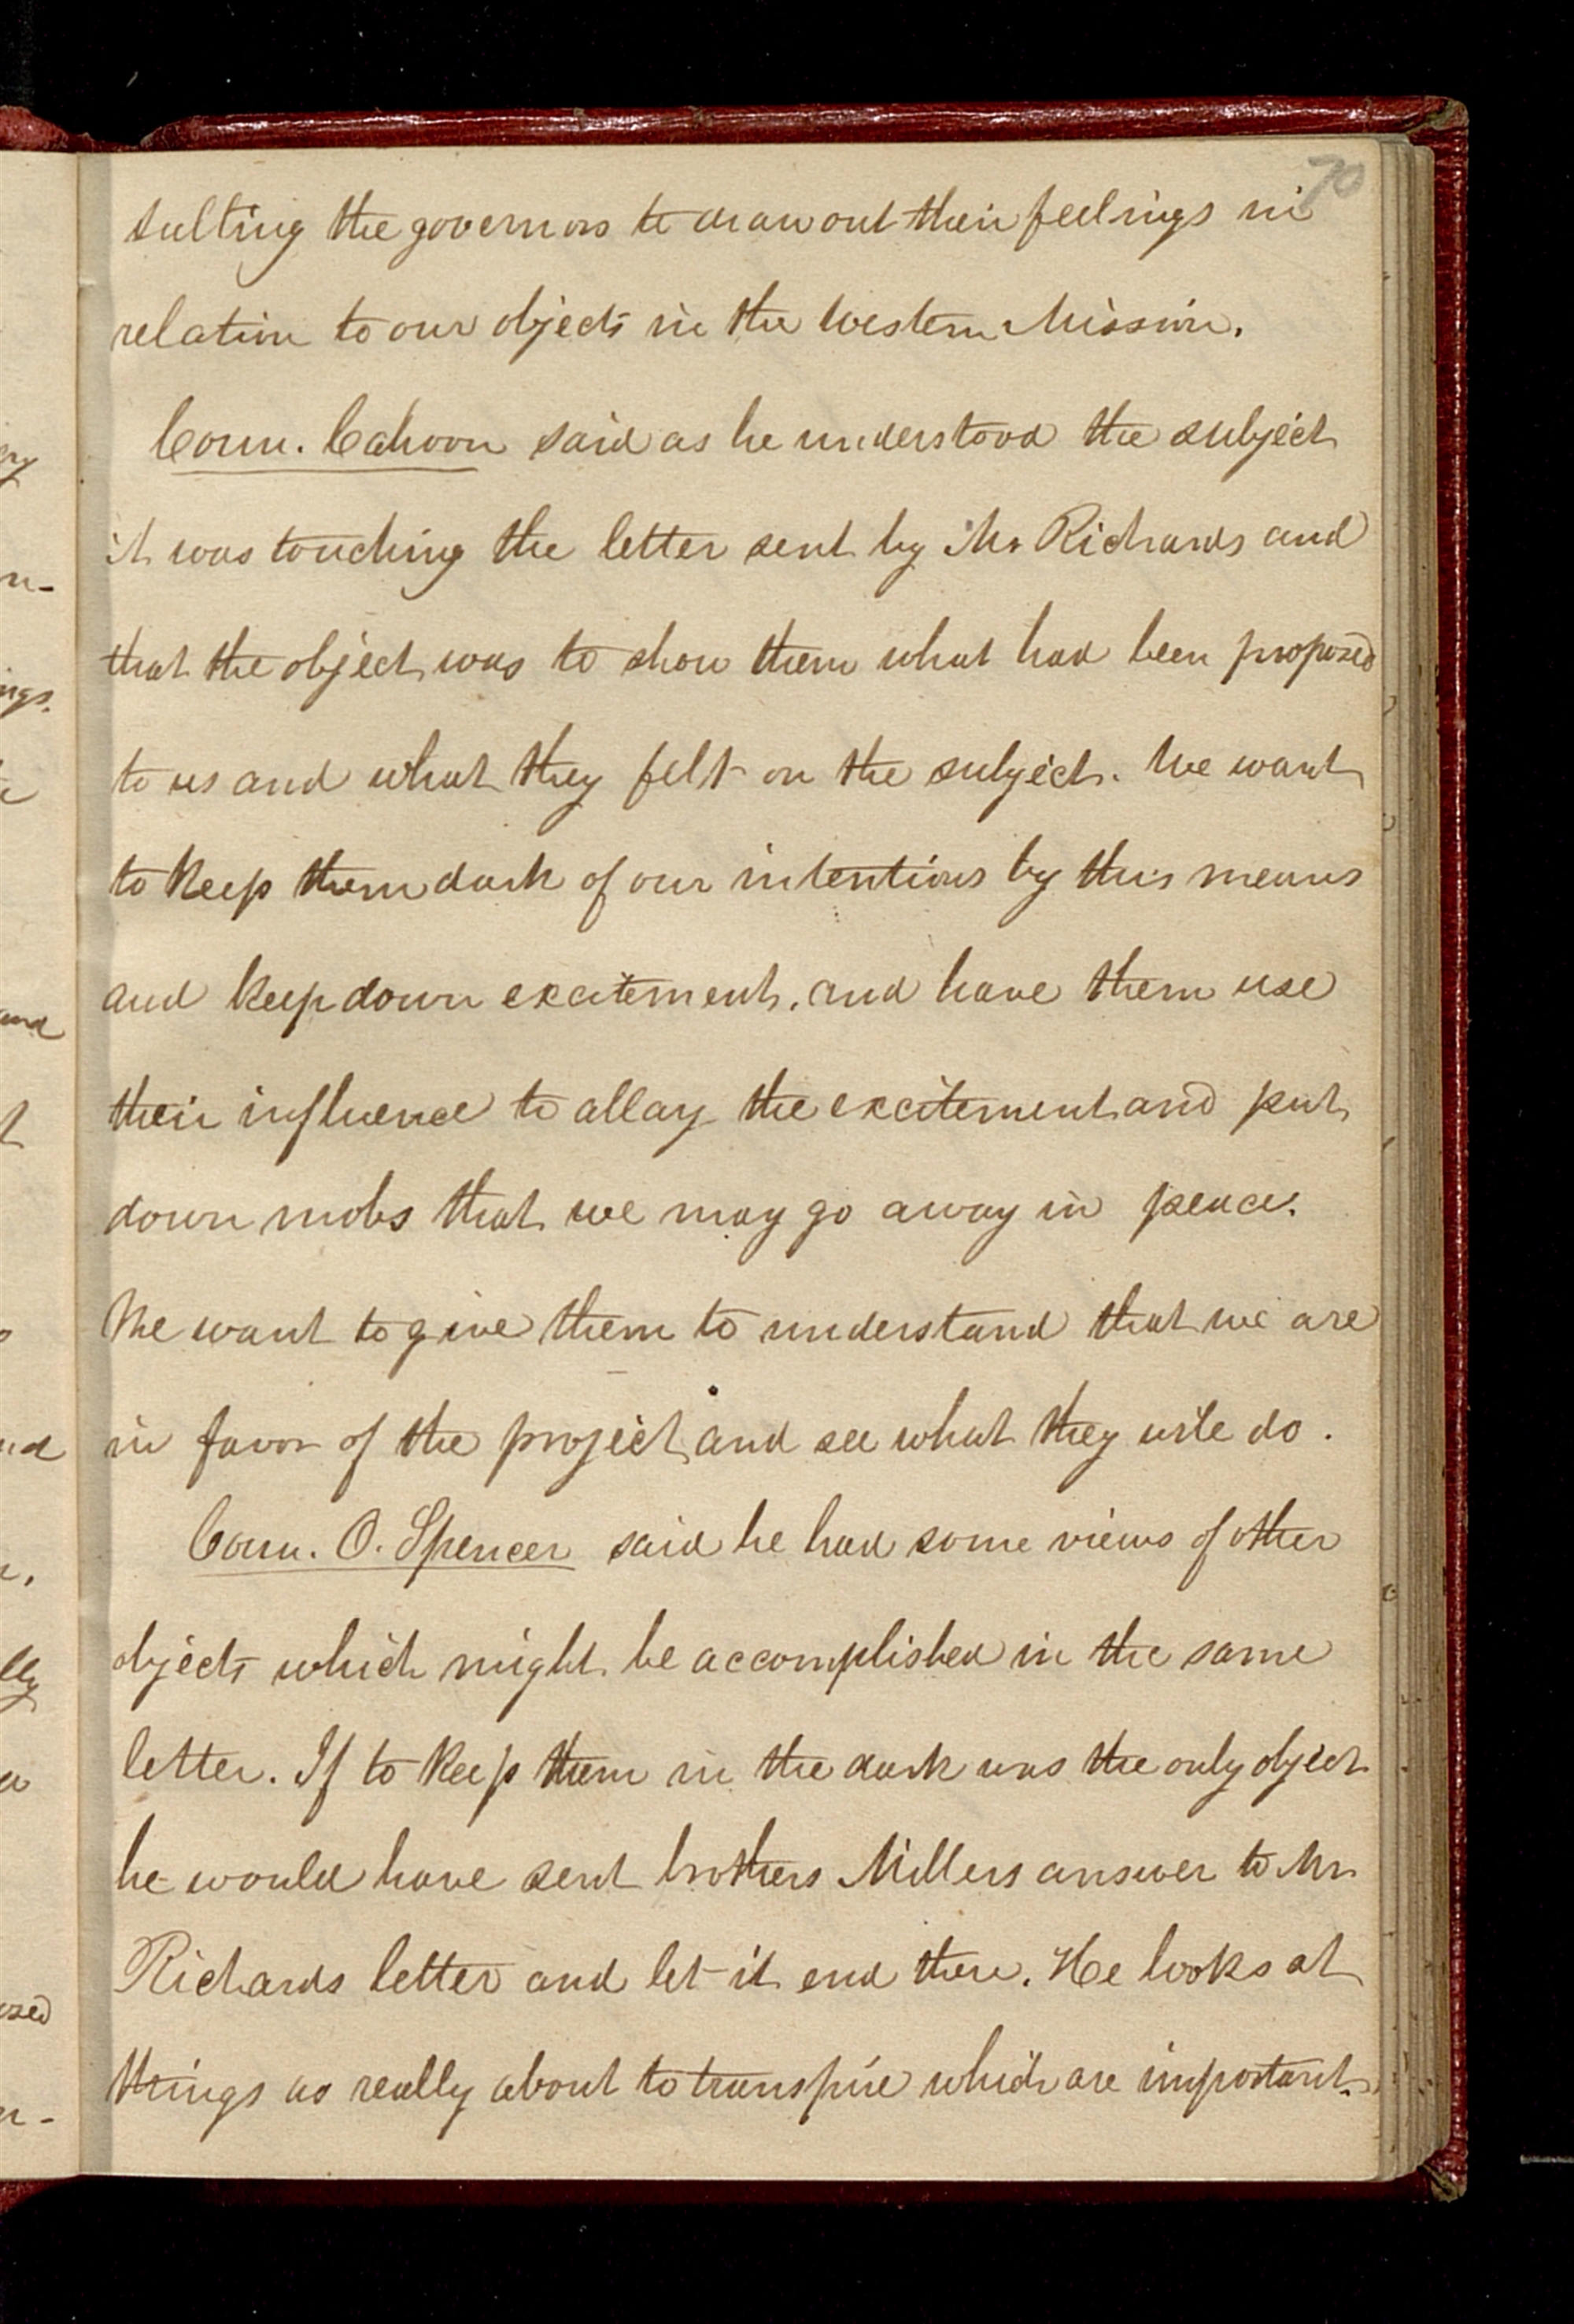 70
sulting the governors to draw out their feelings in
relation to our objects in the Western Mission.
Coun. Cahoon said as he understood the subject
it was touching the letter sent by Mr Richards and
that the object was to show them what had been proposed
to us and what they felt on the subject. We want
to keep them dark of our intentions by this means
and keep down excitement, and have them use
their influence to allay the excitement and put
down mobs that we may go away in peace.
We want to give them to understand that we are
in favor of the project and see what they will do.
Coun. O. Spencer said he had some views of other
objects which might be accomplished in the same
letter. If to keep them in the dark was the only object
he would have sent brothers Millers answer to Mr
Richards letter and let it end there. He looks at
things as really about to transpire which are important.